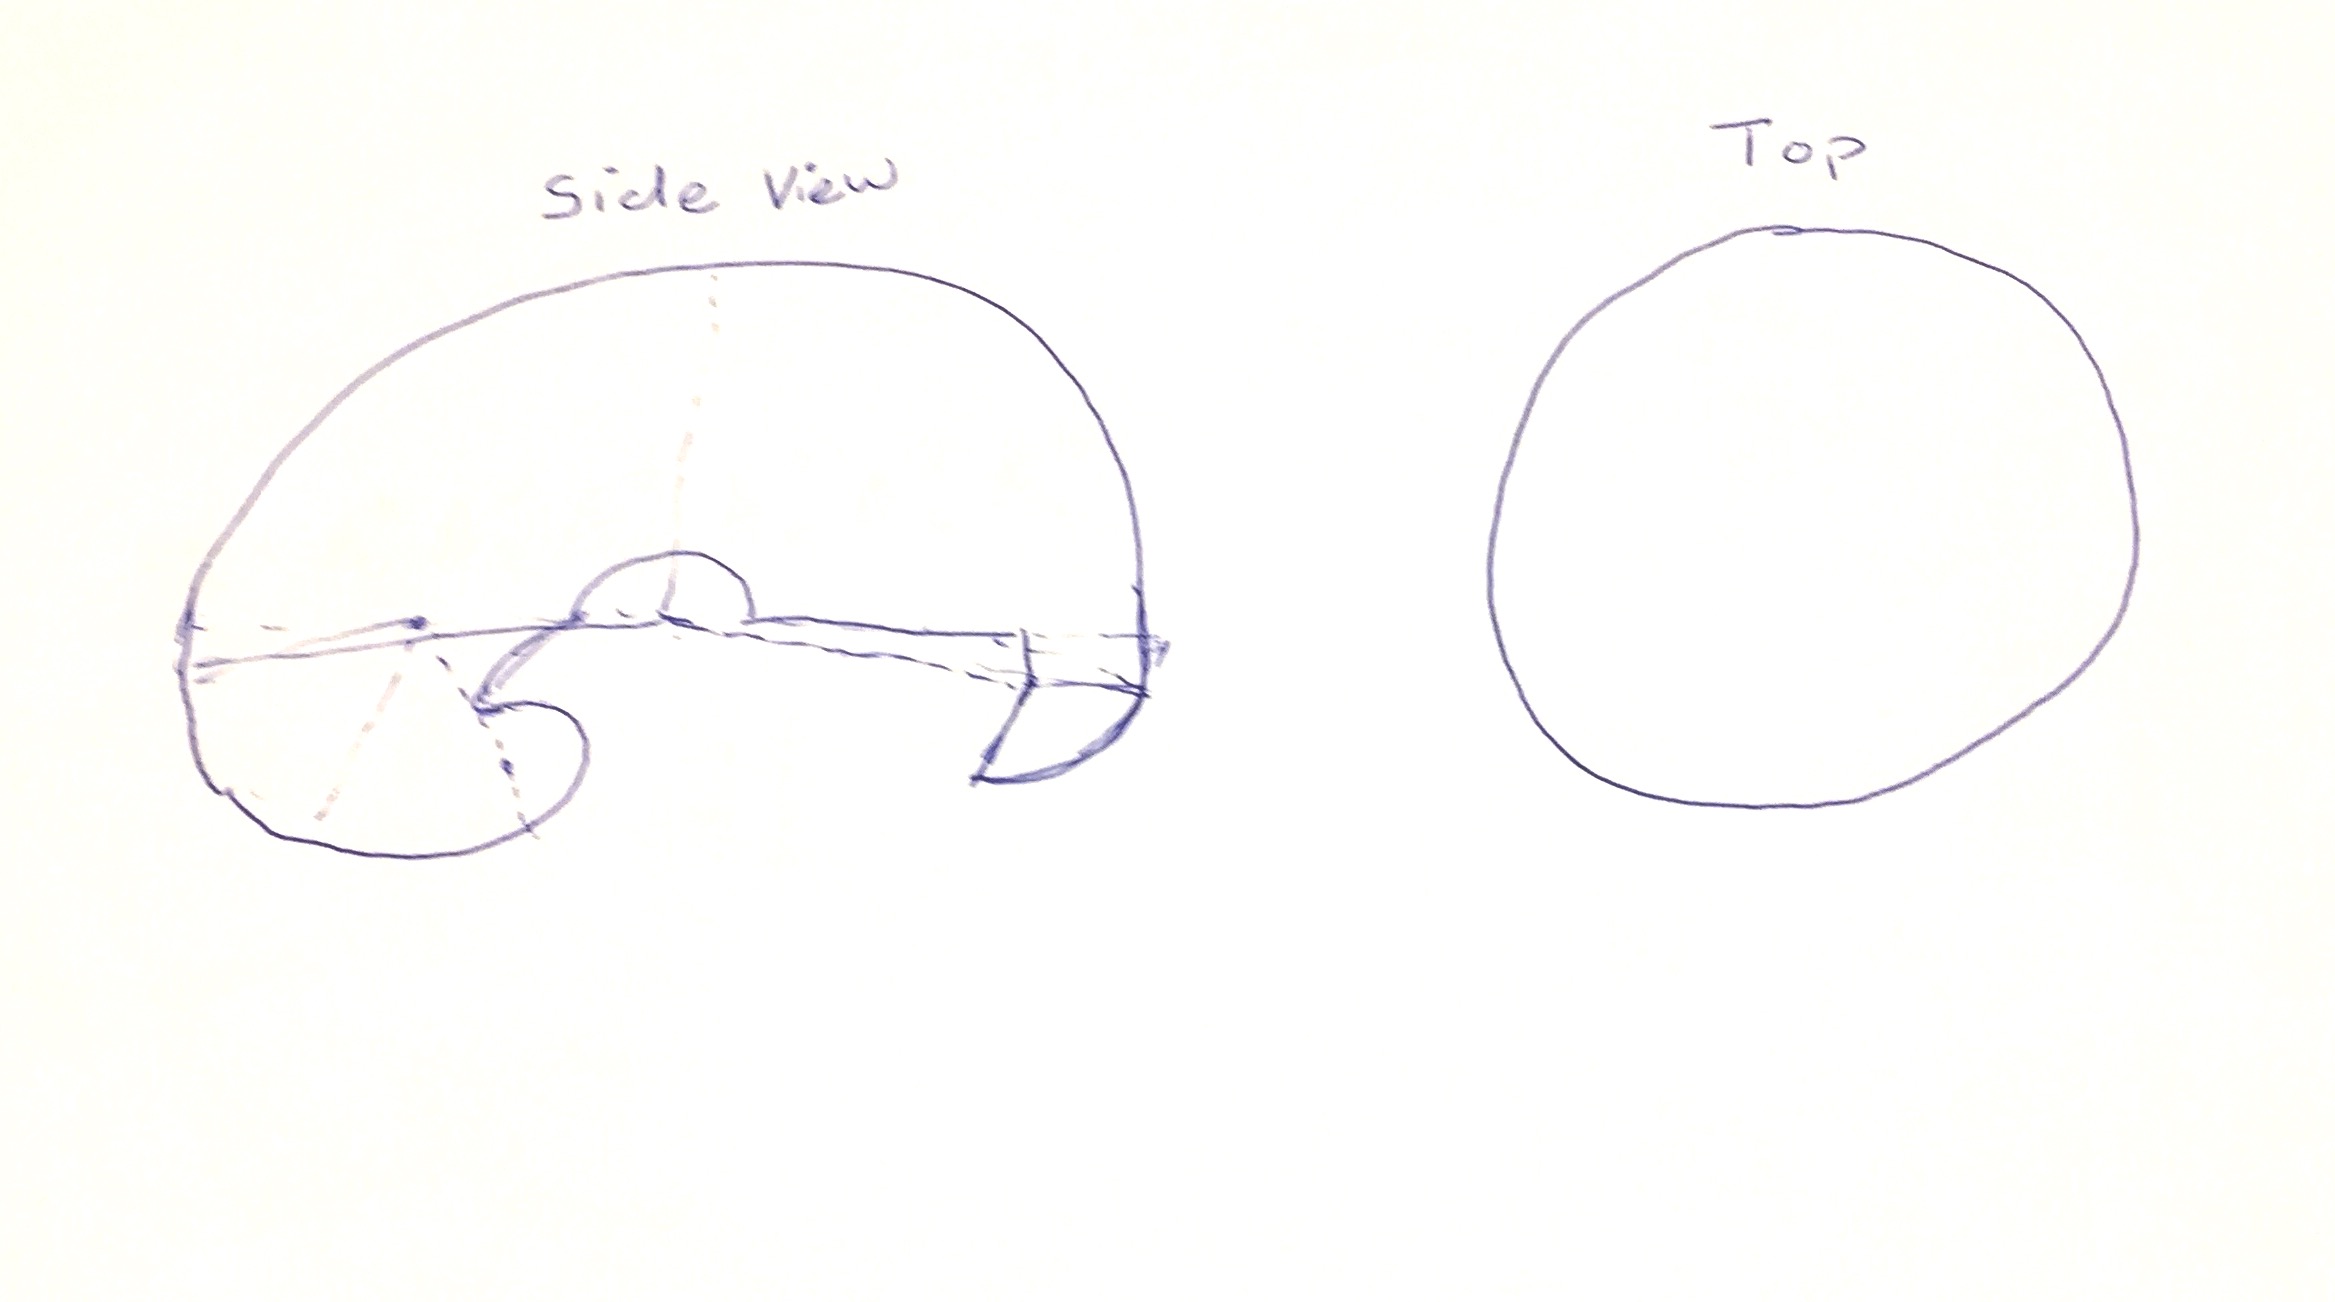 Side View
Top